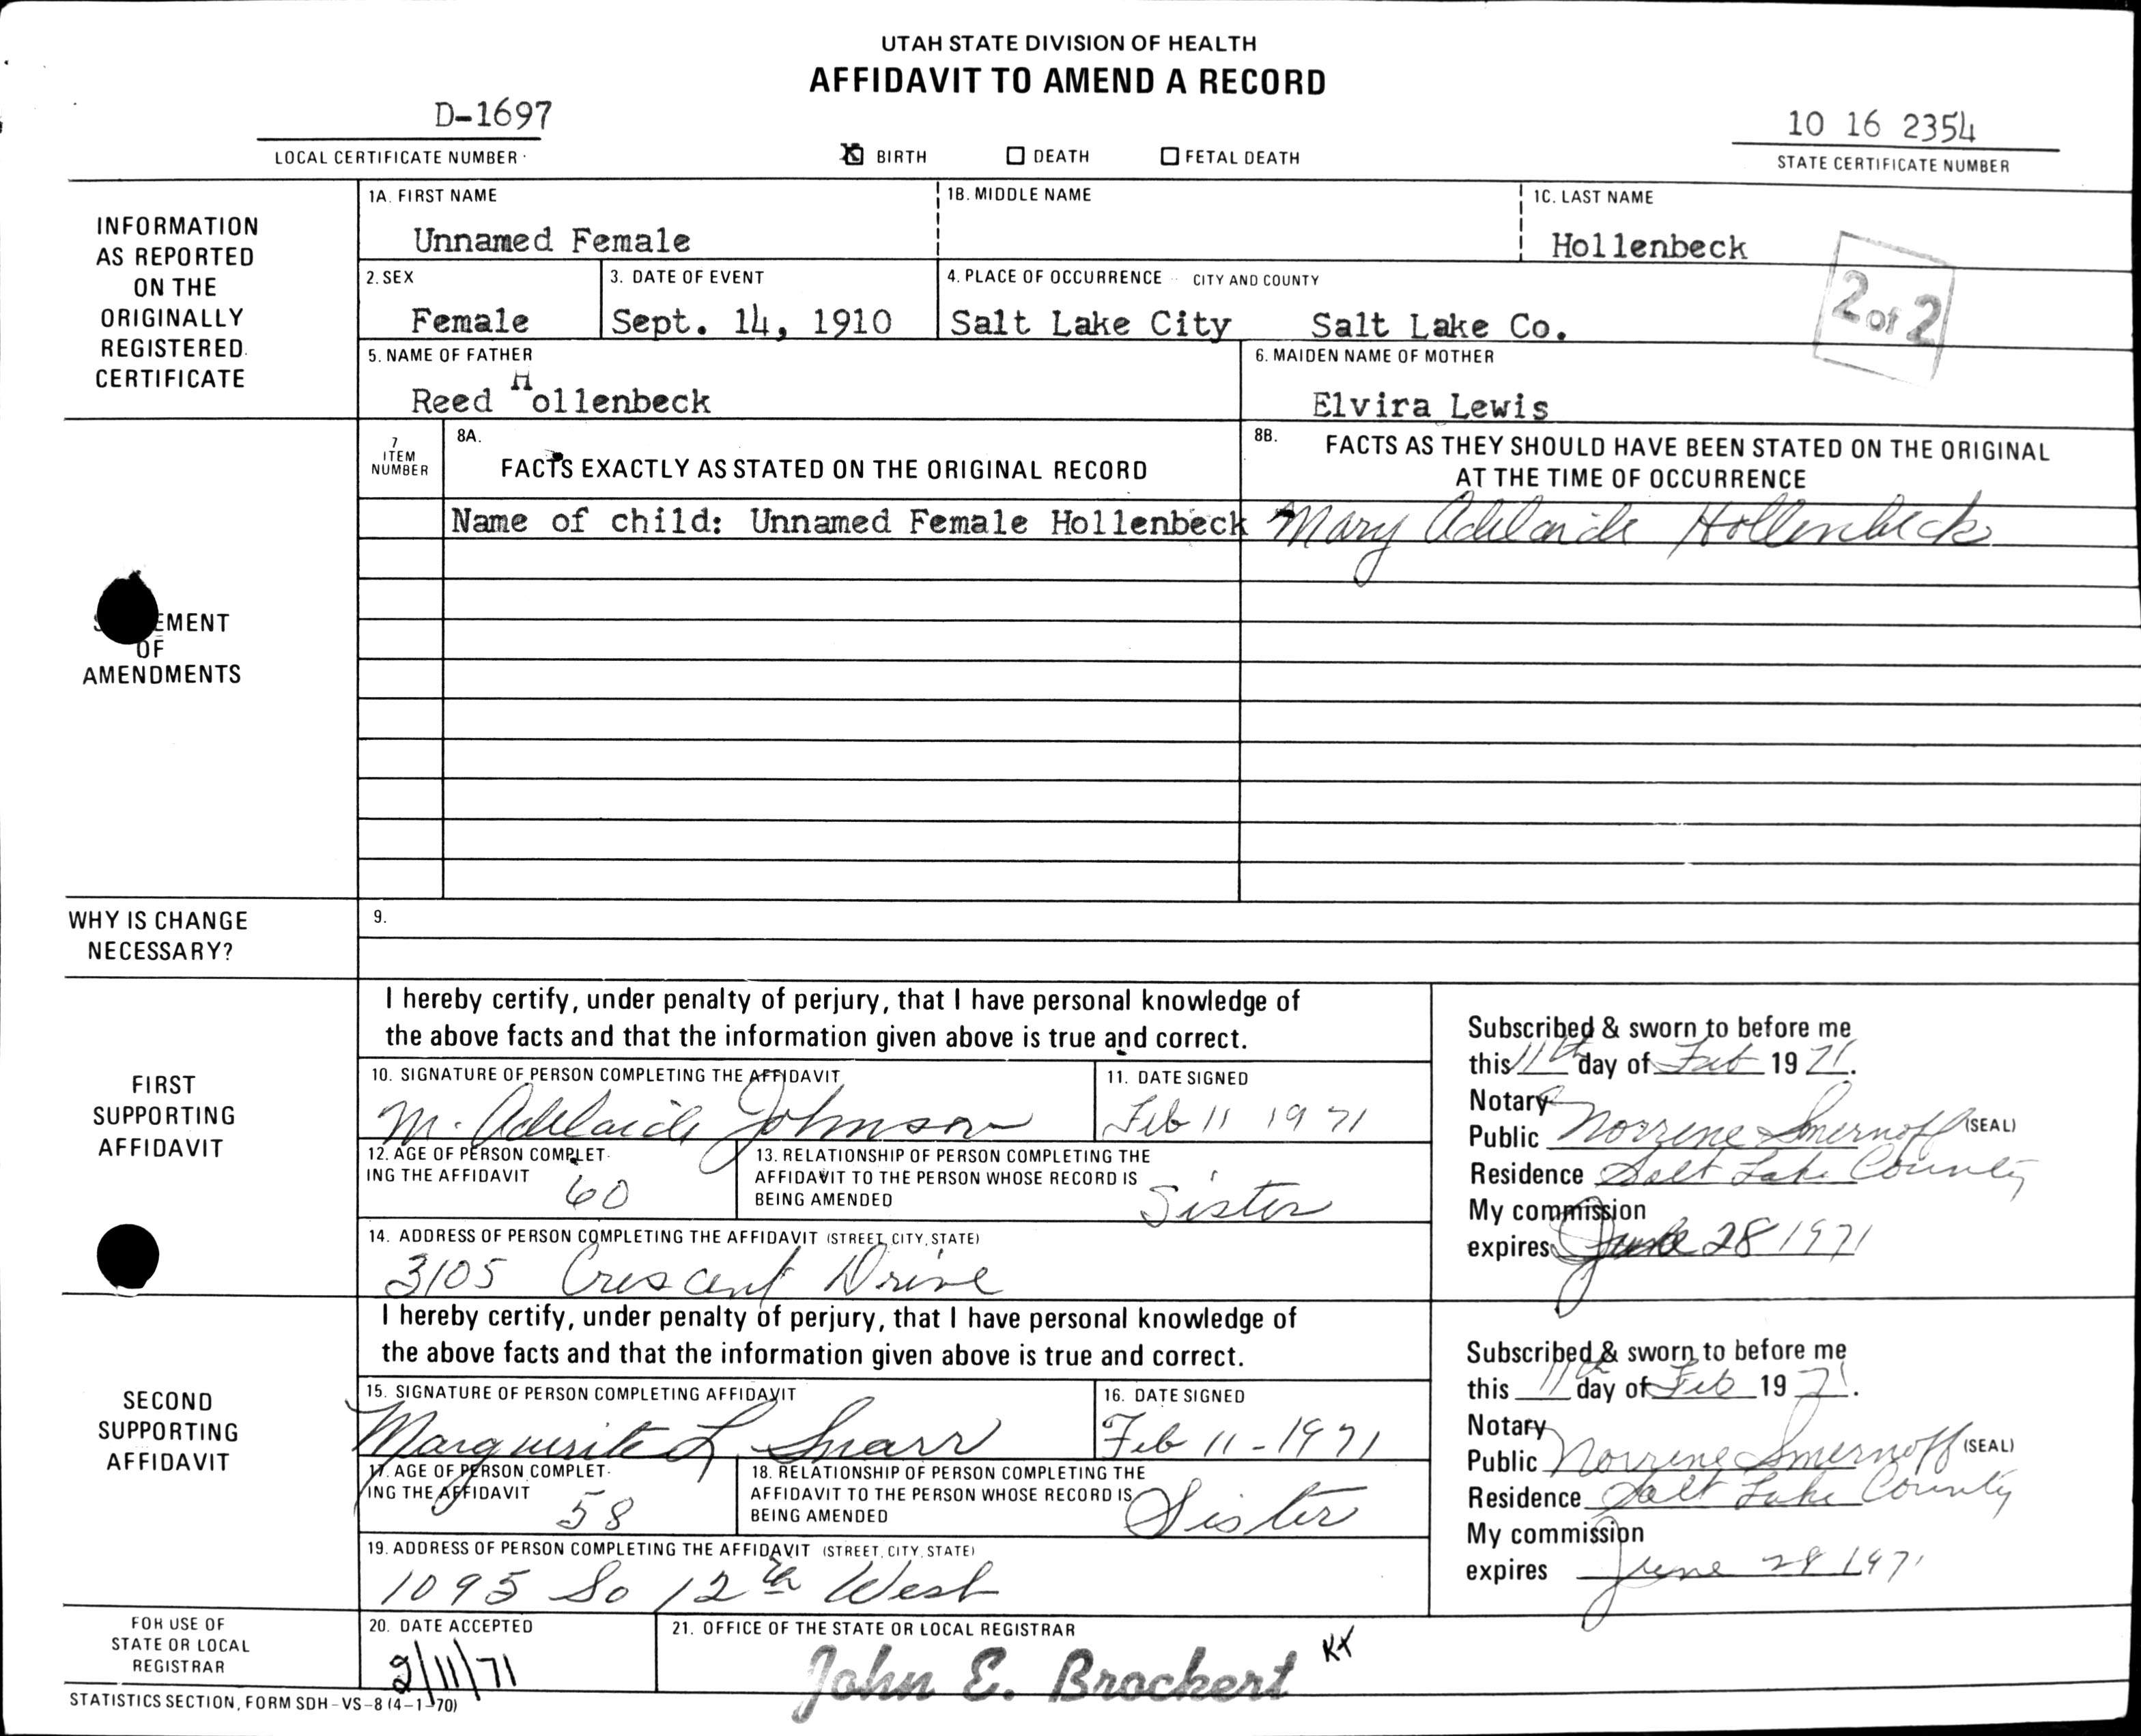 UTAH STATE DIVISION OF HEALTH
AFFIDAVIT TO AMEND A RECORD
D-1697
LOCAL CERTIFICATE NUMBER
X BIRTH DEATH FETAL DEATH
10 16 2354
STATE CERTIFICATE NUMBER
INFORMATION
AS REPORTED
ON THE
ORIGINALLY
REGISTERED
CERTIFICATE
1A. FIRST NAME
Unnamed Female
1B. MIDDLE NAME
1C. LAST NAME
Hollenbeck
2. SEX
Female
3. DATE OF EVENT
Sept. 14, 1910
4. PLACE OF OCCURRENCE CITY AND COUNTY
Salt Lake City Salt Lake Co.
2 of 2
5. NAME OF FATHER
Reed Hollenbeck
6. MAIDEN NAME OF MOTHER
Elvira Lewis
OF
AMENDMENTS
7
ITEM
NUMBER
8A.
FACTS EXACTLY AS STATED ON THE ORIGINAL RECORD
8B. FACTS AS THEY SHOULD HAVE BEEN STATED ON THE ORIGINAL
AT THE TIME OF OCCURRENCE
Name of child: Unnamed Female Hollenbeck
Mary Adelaide Hollenbeck
WHY IS CHANGE
NECESSARY?
9.
FIRST
SUPPORTING
AFFIDAVIT
I hereby certify, under penalty of perjury, that I have personal knowledge of
the above facts and that the information given above is true and correct.
10. SIGNATURE OF PERSON COMPLETING THE AFFIDAVIT
M. Adelaide Johnson
11. DATE SIGNED
Feb 11 1971
12. AGE OF PERSON COMPLET-
ING THE AFFIDAVIT
60
13. RELATIONSHIP OF PERSON COMPLETING THE
AFFIDAVIT TO THE PERSON WHOSE RECORD IS
BEING AMENDED
Sister
14. ADDRESS OF PERSON COMPLETING THE AFFIDAVIT (STREET, CITY, STATE)
3105 Crescent Drive
Subscribed & sworn to before me
this 11th day of Feb 19 71.
Notary
Public Norrene Smernoff (SEAL)
Residence Salt Lake County
My commission
expires June 28 1971
SECOND
SUPPORTING
AFFIDAVIT
I hereby certify, under penalty of perjury, that I have personal knowledge of
the above facts and that the information given above is true and correct.
15. SIGNATURE OF PERSON COMPLETING AFFIDAVIT
Marguerite L. Snarr
16. DATE SIGNED
Feb 11-1971
17. AGE OF PERSON COMPLET-
ING THE AFFIDAVIT
58
18. RELATIONSHIP OF PERSON COMPLETING THE
AFFIDAVIT TO THE PERSON WHOSE RECORD IS
BEING AMENDED
Sister
19. ADDRESS OF PERSON COMPLETING THE AFFIDAVIT (STREET, CITY, STATE)
1095 So 12th West
Subscribed & sworn to before me
this 11th day of Feb 19 71.
Notary
Public Norrene Smernoff (SEAL)
Residence Salt Lake County
My commission
expires June 28 1971
FOR USE OF
STATE OR LOCAL
REGISTRAR
20. DATE ACCEPTED
2/11/71
21. OFFICE OF THE STATE OR LOCAL REGISTRAR
John E. Brockert
STATISTICS SECTION, FORM SDH-VS-8 (4-1-70)